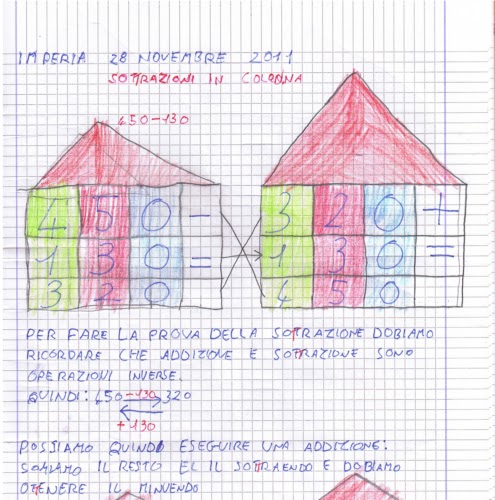 IMPERIA 28 NOVEMBRE 2011
SOTTRAZIONI IN COLONNA
450-130
450- 320+
130= 130=
320 450
PER FARE LA PROVA DELLA SOTTRAZIONE DOBIAMO
RICORDARE CHE ADDIZIONE E SOTTRAZIONE SONO
OPERAZIONI INVERSE.
QUINDI: 450 -130 320
+130
POSSIAMO QUINDI ESEGUIRE UNA ADDIZIONE:
SOMIAMO IL RESTO E IL SOTTRAENDO E DOBIAMO
OTENERE IL MINUENDO